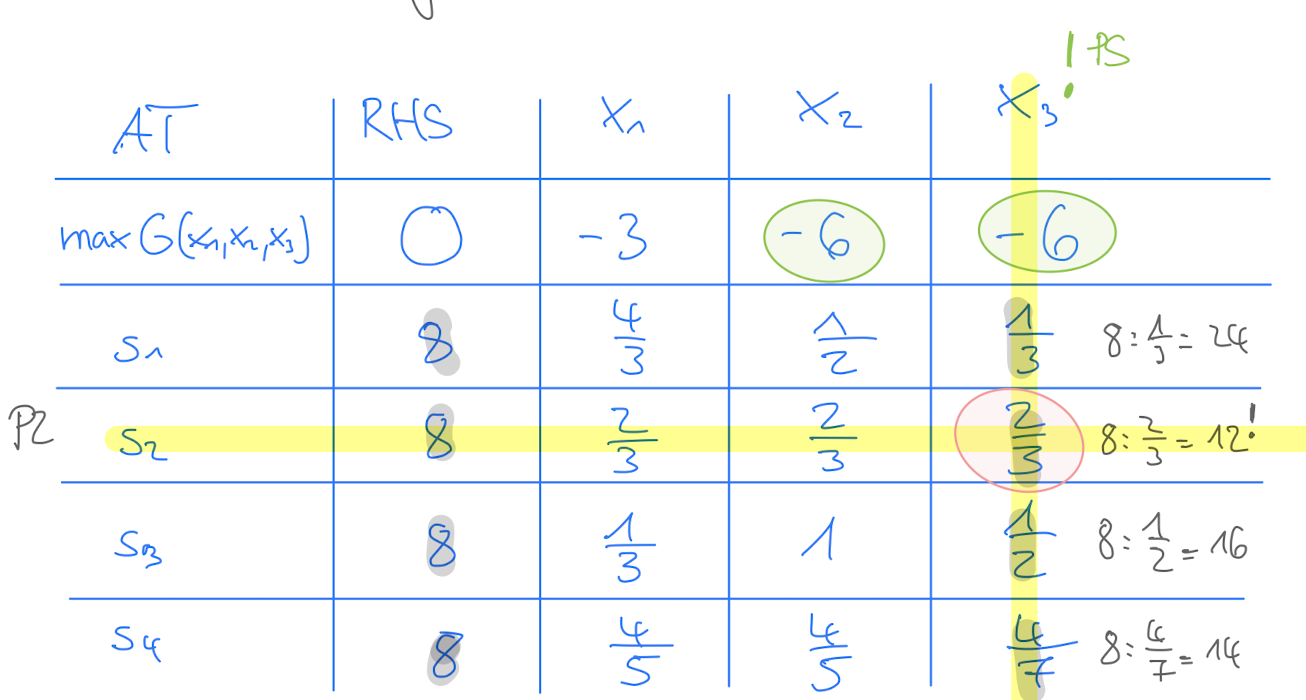 ! PS
AT RHS X₁ X₂ X₃
max G(x₁,x₂,x₃) 0 -3 -6 -6
S₁ 8 4/3 1/2 1/3 8 : 1/3 = 24
PZ S₂ 8 2/3 2/3 2/3 8 : 2/3 = 12 !
S₃ 8 1/3 1 1/2 8 : 1/2 = 16
S₄ 8 4/5 4/5 4/7 8 : 4/7 = 14